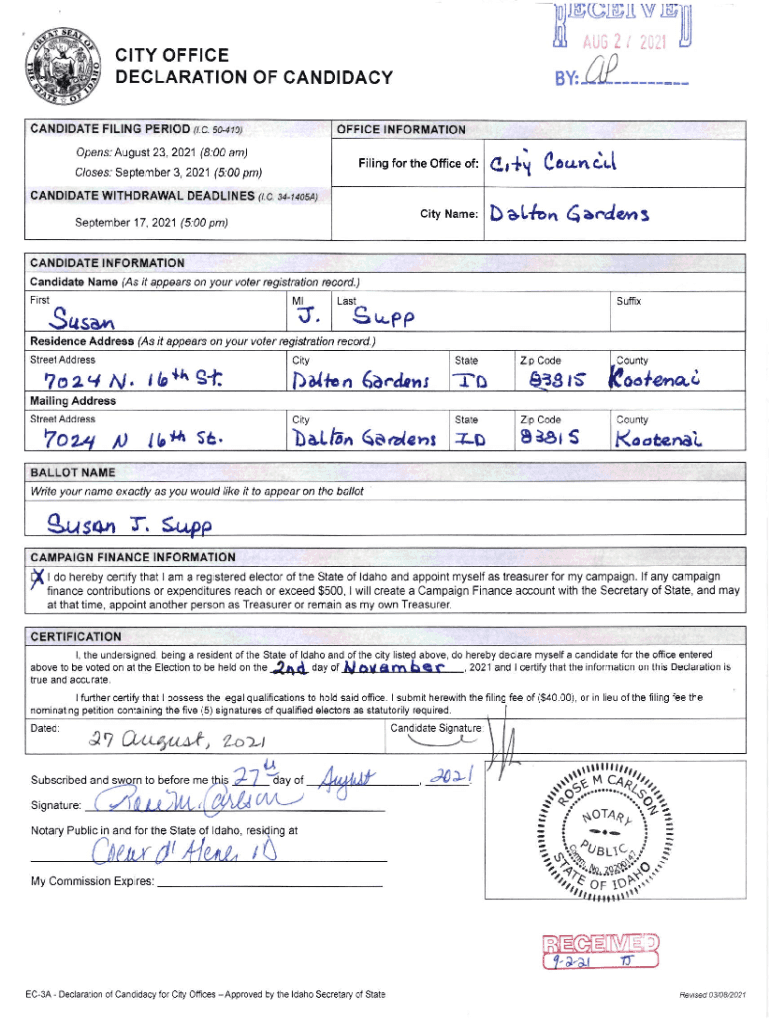 RECEIVED
AUG 27 2021
BY: AP
GREAT SEAL OF THE STATE OF IDAHO
CITY OFFICE
DECLARATION OF CANDIDACY
CANDIDATE FILING PERIOD (I.C. 50-410)
Opens: August 23, 2021 (8:00 am)
Closes: September 3, 2021 (5:00 pm)
CANDIDATE WITHDRAWAL DEADLINES (I.C. 34-1405A)
September 17, 2021 (5:00 pm)
OFFICE INFORMATION
Filing for the Office of: City Council
City Name: Dalton Gardens
CANDIDATE INFORMATION
Candidate Name (As it appears on your voter registration record.)
First MI Last Suffix
Susan J. Supp
Residence Address (As it appears on your voter registration record.)
Street Address City State Zip Code County
7024 N. 16th St. Dalton Gardens ID 83815 Kootenai
Mailing Address
Street Address City State Zip Code County
7024 N 16th St. Dalton Gardens ID 83815 Kootenai
BALLOT NAME
Write your name exactly as you would like it to appear on the ballot
Susan J. Supp
CAMPAIGN FINANCE INFORMATION
X I do hereby certify that I am a registered elector of the State of Idaho and appoint myself as treasurer for my campaign. If any campaign
finance contributions or expenditures reach or exceed $500, I will create a Campaign Finance account with the Secretary of State, and may
at that time, appoint another person as Treasurer or remain as my own Treasurer.
CERTIFICATION
I, the undersigned, being a resident of the State of Idaho and of the city listed above, do hereby declare myself a candidate for the office entered
above to be voted on at the Election to be held on the 2nd day of November, 2021 and I certify that the information on this Declaration is
true and accurate.
I further certify that I possess the legal qualifications to hold said office. I submit herewith the filing fee of ($40.00), or in lieu of the filing fee the
nominating petition containing the five (5) signatures of qualified electors as statutorily required.
Dated: 27 August, 2021 Candidate Signature:
Subscribed and sworn to before me this 27th day of August, 2021.
Signature: Rose M. Carlson
Notary Public in and for the State of Idaho, residing at
Coeur d' Alene, ID
My Commission Expires:
ROSE M CARLSON
NOTARY
PUBLIC
Comm. No. 20200147
STATE OF IDAHO
RECEIVED
9-2-21 TJ
EC-3A - Declaration of Candidacy for City Offices – Approved by the Idaho Secretary of State
Revised 03/08/2021